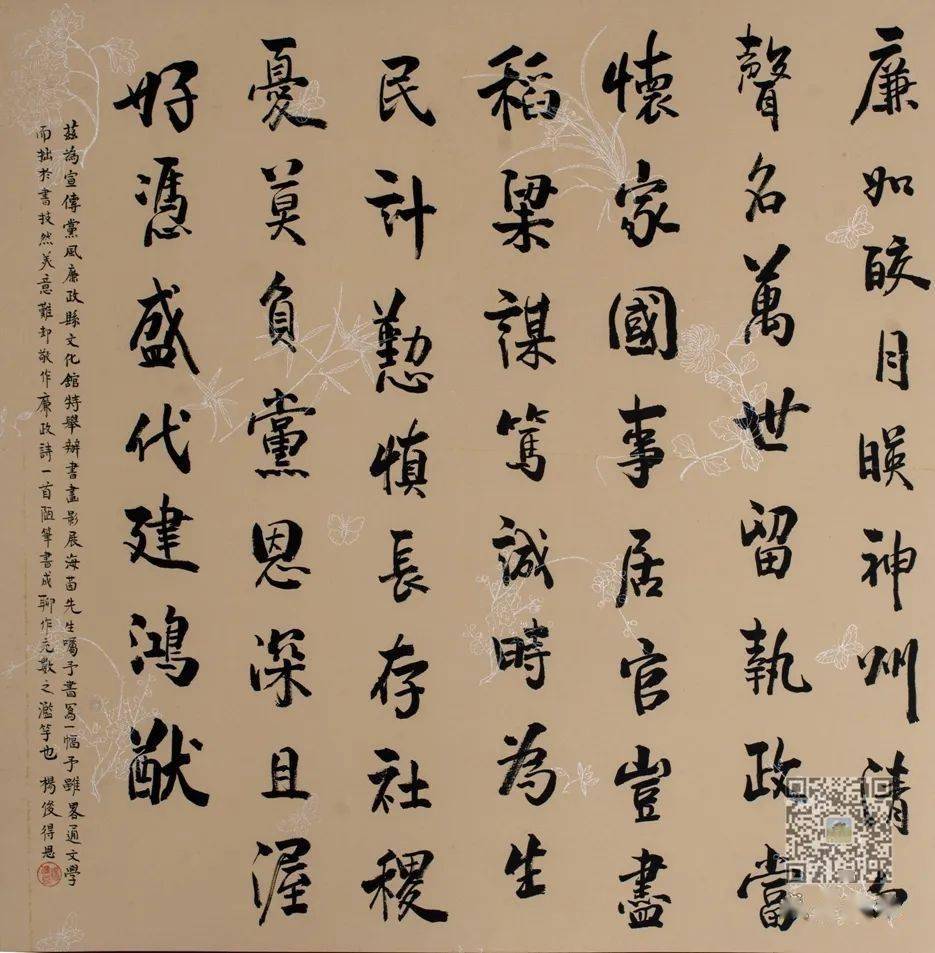 廉如皎月暎神州清
聲名萬世留執政當
懷家國事居官豈盡
稻粱謀篤誠時為生
民計懃慎長存社稷
憂莫負黨恩深且渥
好憑盛代建鴻猷
茲為宣傳黨風廉政縣文化館特舉辦書畫影展海茵先生囑予書寫一幅予雖畧通文學
而拙於書技然美意難却敬作廉政詩一首陋筆書成聊作充數之濫竽也 楊俊得恩